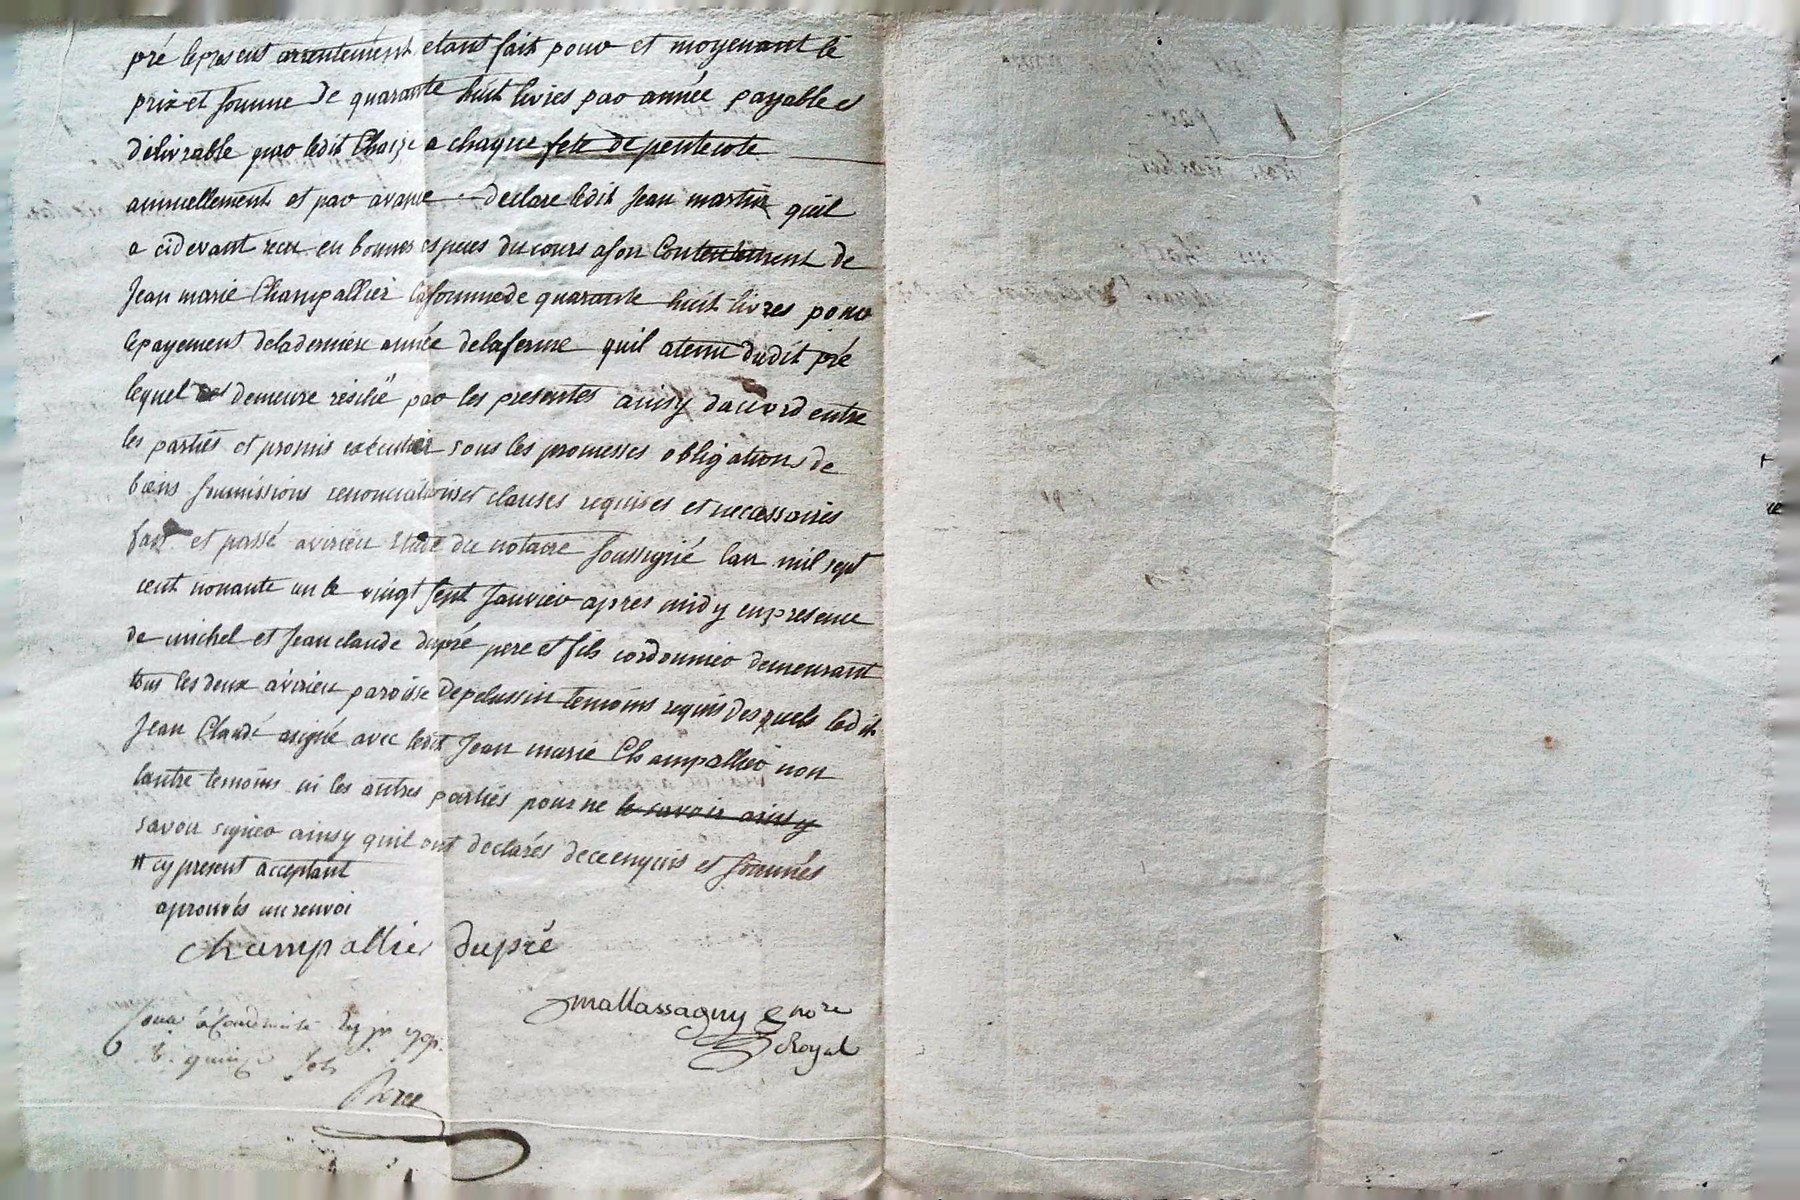 pré le present arrentement etant fait pour et moyenant le
prix et somme de quarante huit livres par année payable et
délivrable par ledit Chaize a chaque fete de pentecote
annuellement et par avance declare ledit Jean martin quil
a cidevant recu en bonnes especes du cours a son Contentement de
Jean marie Champallier la somme de quarante huit livres pour
le payement de la derniere année de la ferme quil a tenu dudit pré
lequel demeure résilié par les presentes ainsy daccord entre
les partiés et promis exécuter sous les promesses obligations de
biens soumissions renonciations et clauses requises et necessaires
fait et passé a virieu etude du notaire soussigné lan mil sept
cent nonante un le vingt sept Janvier apres midy en presence
de michel et Jean claude dupré pere et fils cordonnier demeurant
tous les deux a virieu paroisse de pelussin temoins requis desquels ledit
Jean Claude a signé avec ledit Jean marie Champallier non
lautre temoins ni les autres partiés pour ne le savoir ainsy
savoir signer ainsy quil ont declarés de ce enquis et sommés
# cy present acceptant
aprouvés un renvoi
champallier dupré
mallassagny nore
Royal
quinze sols